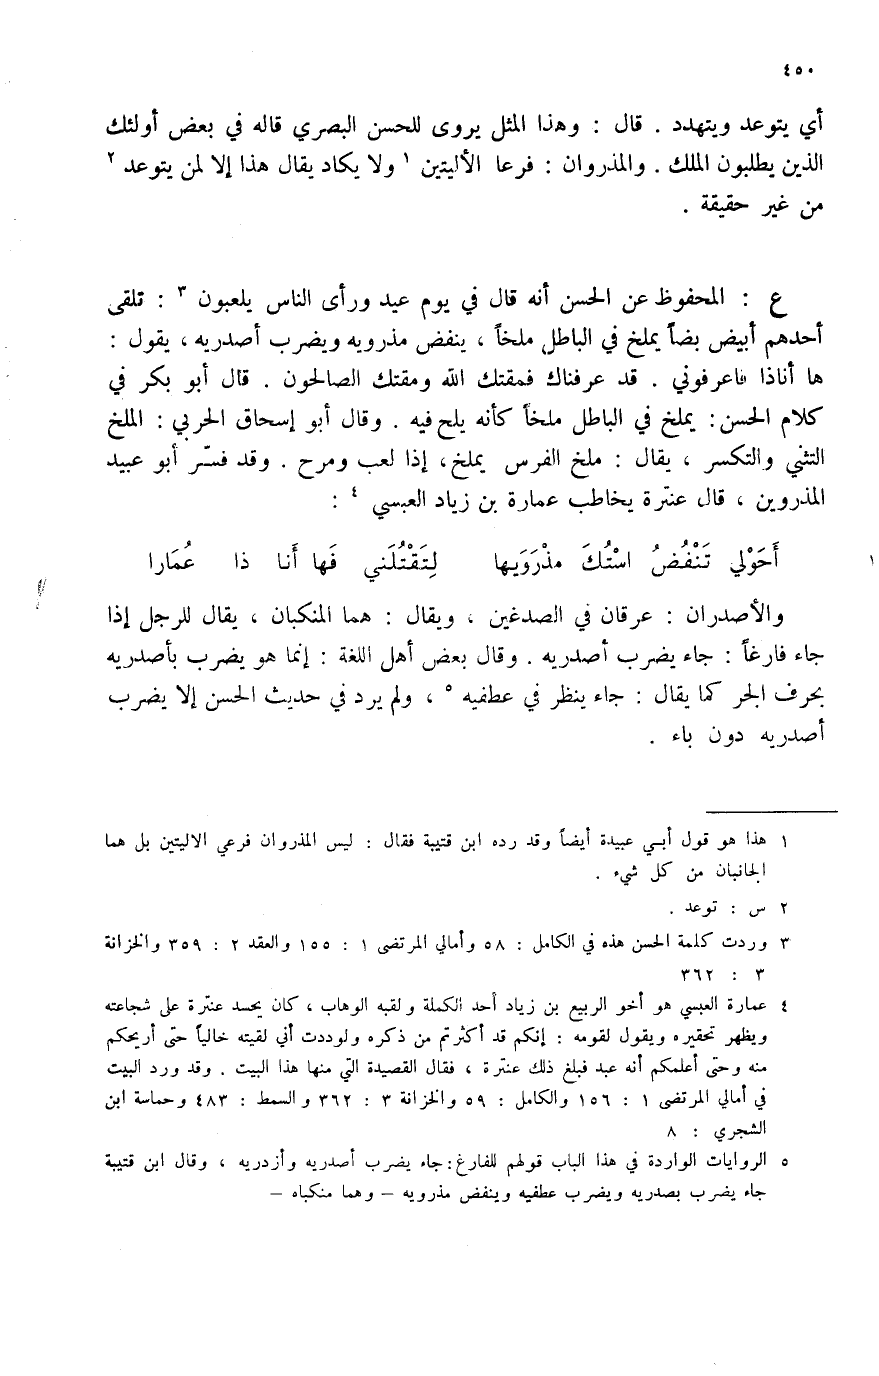 ٤٥٠
أي يتوعد ويتهدد . قال : وهذا المثل يروى للحسن البصري قاله في بعض أولئك
الذين يطلبون الملك . والمذروان : فرعا الأليتين ١ ولا يكاد يقال هذا إلا لمن يتوعد ٢
من غير حقيقة .
ع : المحفوظ عن الحسن أنه قال في يوم عيد ورأى الناس يلعبون ٣ : تلقى
أحدهم أبيض بضاً يملخ في الباطل ملخاً ، ينفض مذرويه ويضرب أصدريه ، يقول :
ها أناذا فاعرفوني . قد عرفناك فمقتك الله ومقتك الصالحون . قال أبو بكر في
كلام الحسن : يملخ في الباطل ملخاً كأنه يلح فيه . وقال أبو إسحاق الحربي : الملخ
التثني والتكسر ، يقال : ملخ الفرس يملخ ، إذا لعب ومرح . وقد فسّر أبو عبيد
المذروين ، قال عنترة يخاطب عمارة بن زياد العبسي ٤ :
أَحَوْلي تَنْفُضُ اسْتُكَ مِذْرَوَيْها لِتَقْتُلَني فَها أَنا ذا عُمَارا ١
والأصدران : عرقان في الصدغين ، ويقال : هما المنكبان ، يقال للرجل إذا
جاء فارغاً : جاء يضرب أصدريه . وقال بعض أهل اللغة : إنما هو يضرب بأصدريه
بحرف الجر كما يقال : جاء ينظر في عطفيه ٥ ، ولم يرد في حديث الحسن إلا يضرب
أصدريه دون باء .
١ هذا هو قول أبي عبيدة أيضاً وقد رده ابن قتيبة فقال : ليس المذروان فرعي الاليتين بل هما
الجانبان من كل شيء .
٢ س : توعد .
٣ وردت كلمة الحسن هذه في الكامل : ٥٨ وأمالي المرتضى ١ : ١٥٥ والعقد ٢ : ٣٥٩ والخزانة
٣ : ٣٦٢
٤ عمارة العبسي هو أخو الربيع بن زياد أحد الكملة ولقبه الوهاب ، كان يحسد عنترة على شجاعته
ويظهر تحقيره ويقول لقومه : إنكم قد أكثرتم من ذكره ولوددت أني لقيته خالياً حتى أريحكم
منه وحتى أعلمكم أنه عبد فبلغ ذلك عنترة ، فقال القصيدة التي منها هذا البيت . وقد ورد البيت
في أمالي المرتضى ١ : ١٥٦ والكامل : ٥٩ والخزانة ٣ : ٣٦٢ والسمط : ٤٨٣ وحماسة ابن
الشجري : ٨
٥ الروايات الواردة في هذا الباب قولهم للفارغ : جاء يضرب أصدريه وأزدريه ، وقال ابن قتيبة
جاء يضرب بصدريه ويضرب عطفيه وينفض مذرويه – وهما منكباه –